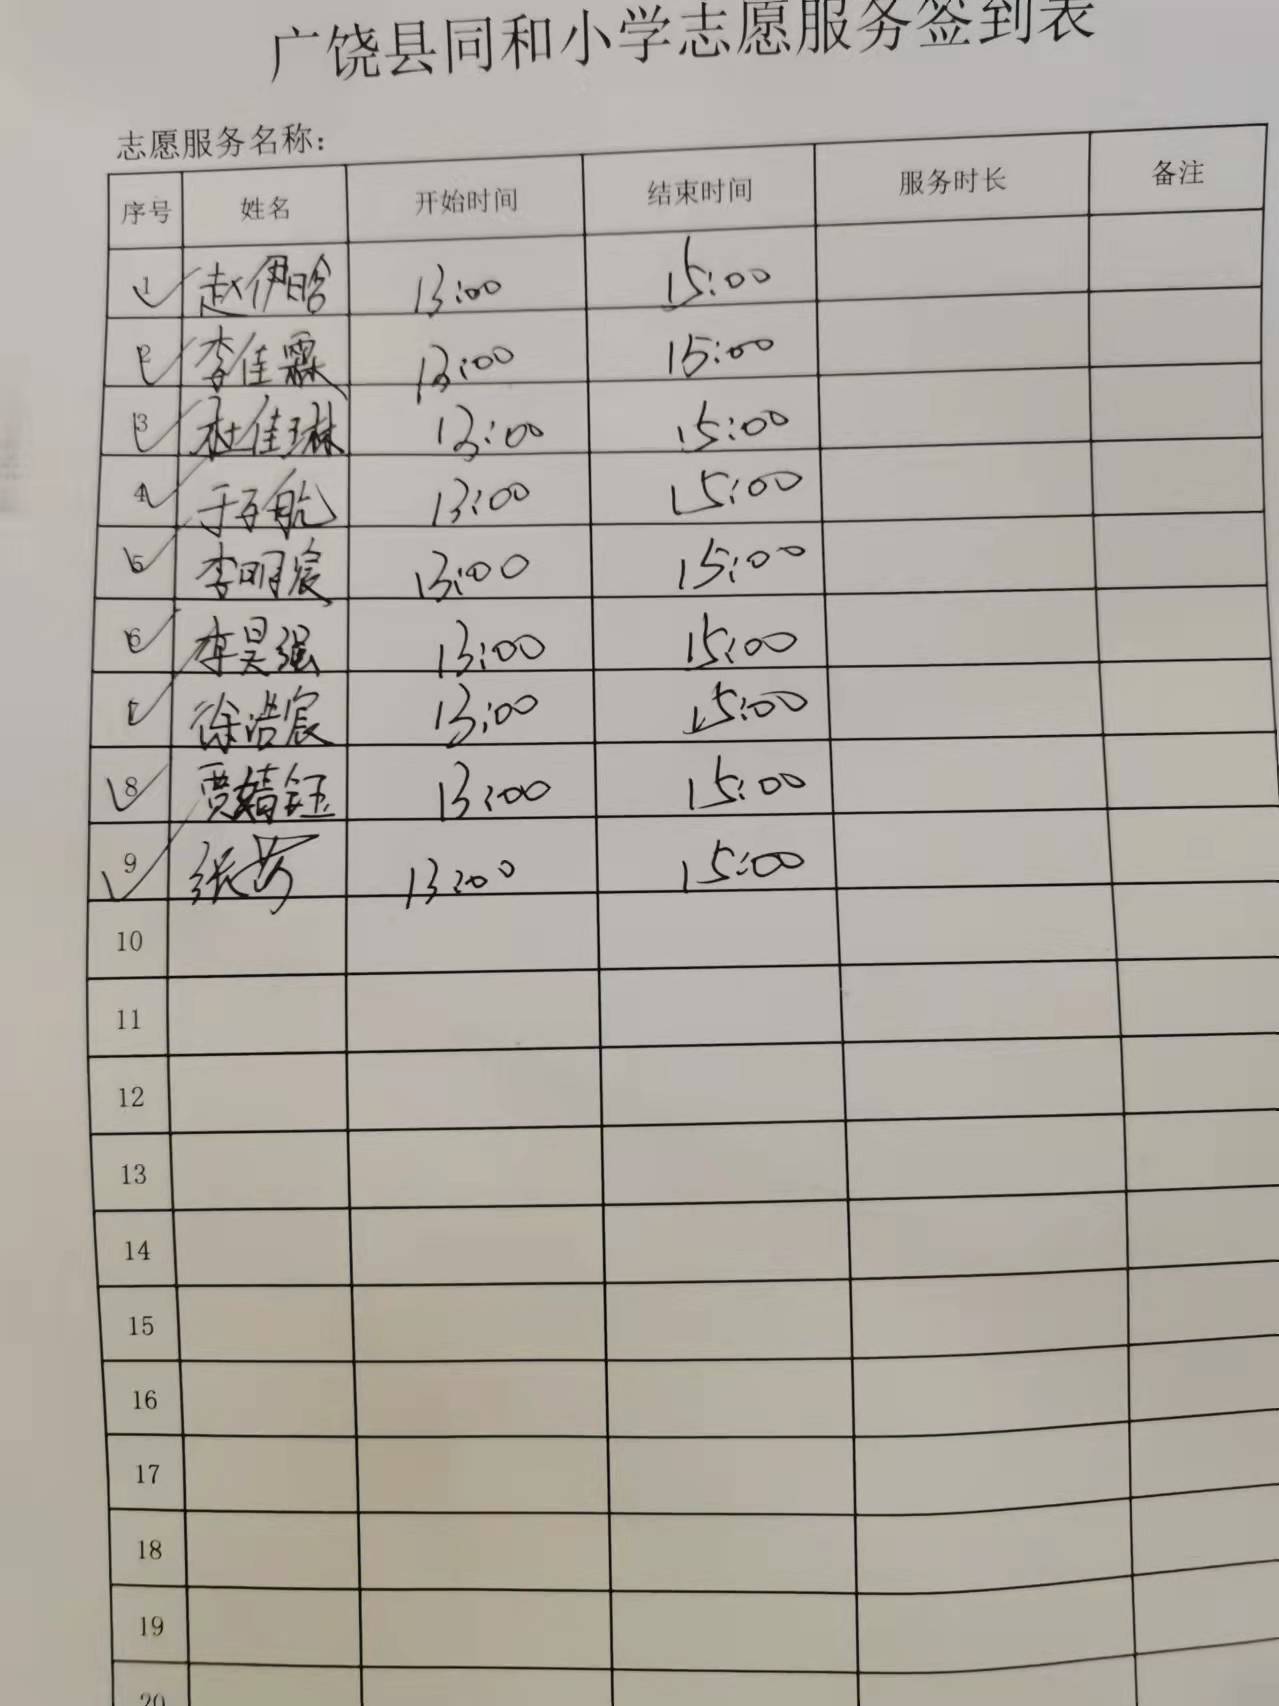 广饶县同和小学志愿服务签到表
志愿服务名称：
序号 姓名 开始时间 结束时间 服务时长 备注
1 赵伊晗 13:00 15:00
2 李佳霖 13:00 15:00
3 杜佳琳 13:00 15:00
4 于百航 13:00 15:00
5 李明宸 13:00 15:00
6 李昊强 13:00 15:00
7 徐浩宸 13:00 15:00
8 贾婧钰 13:00 15:00
9 张 13:00 15:00
10
11
12
13
14
15
16
17
18
19
20